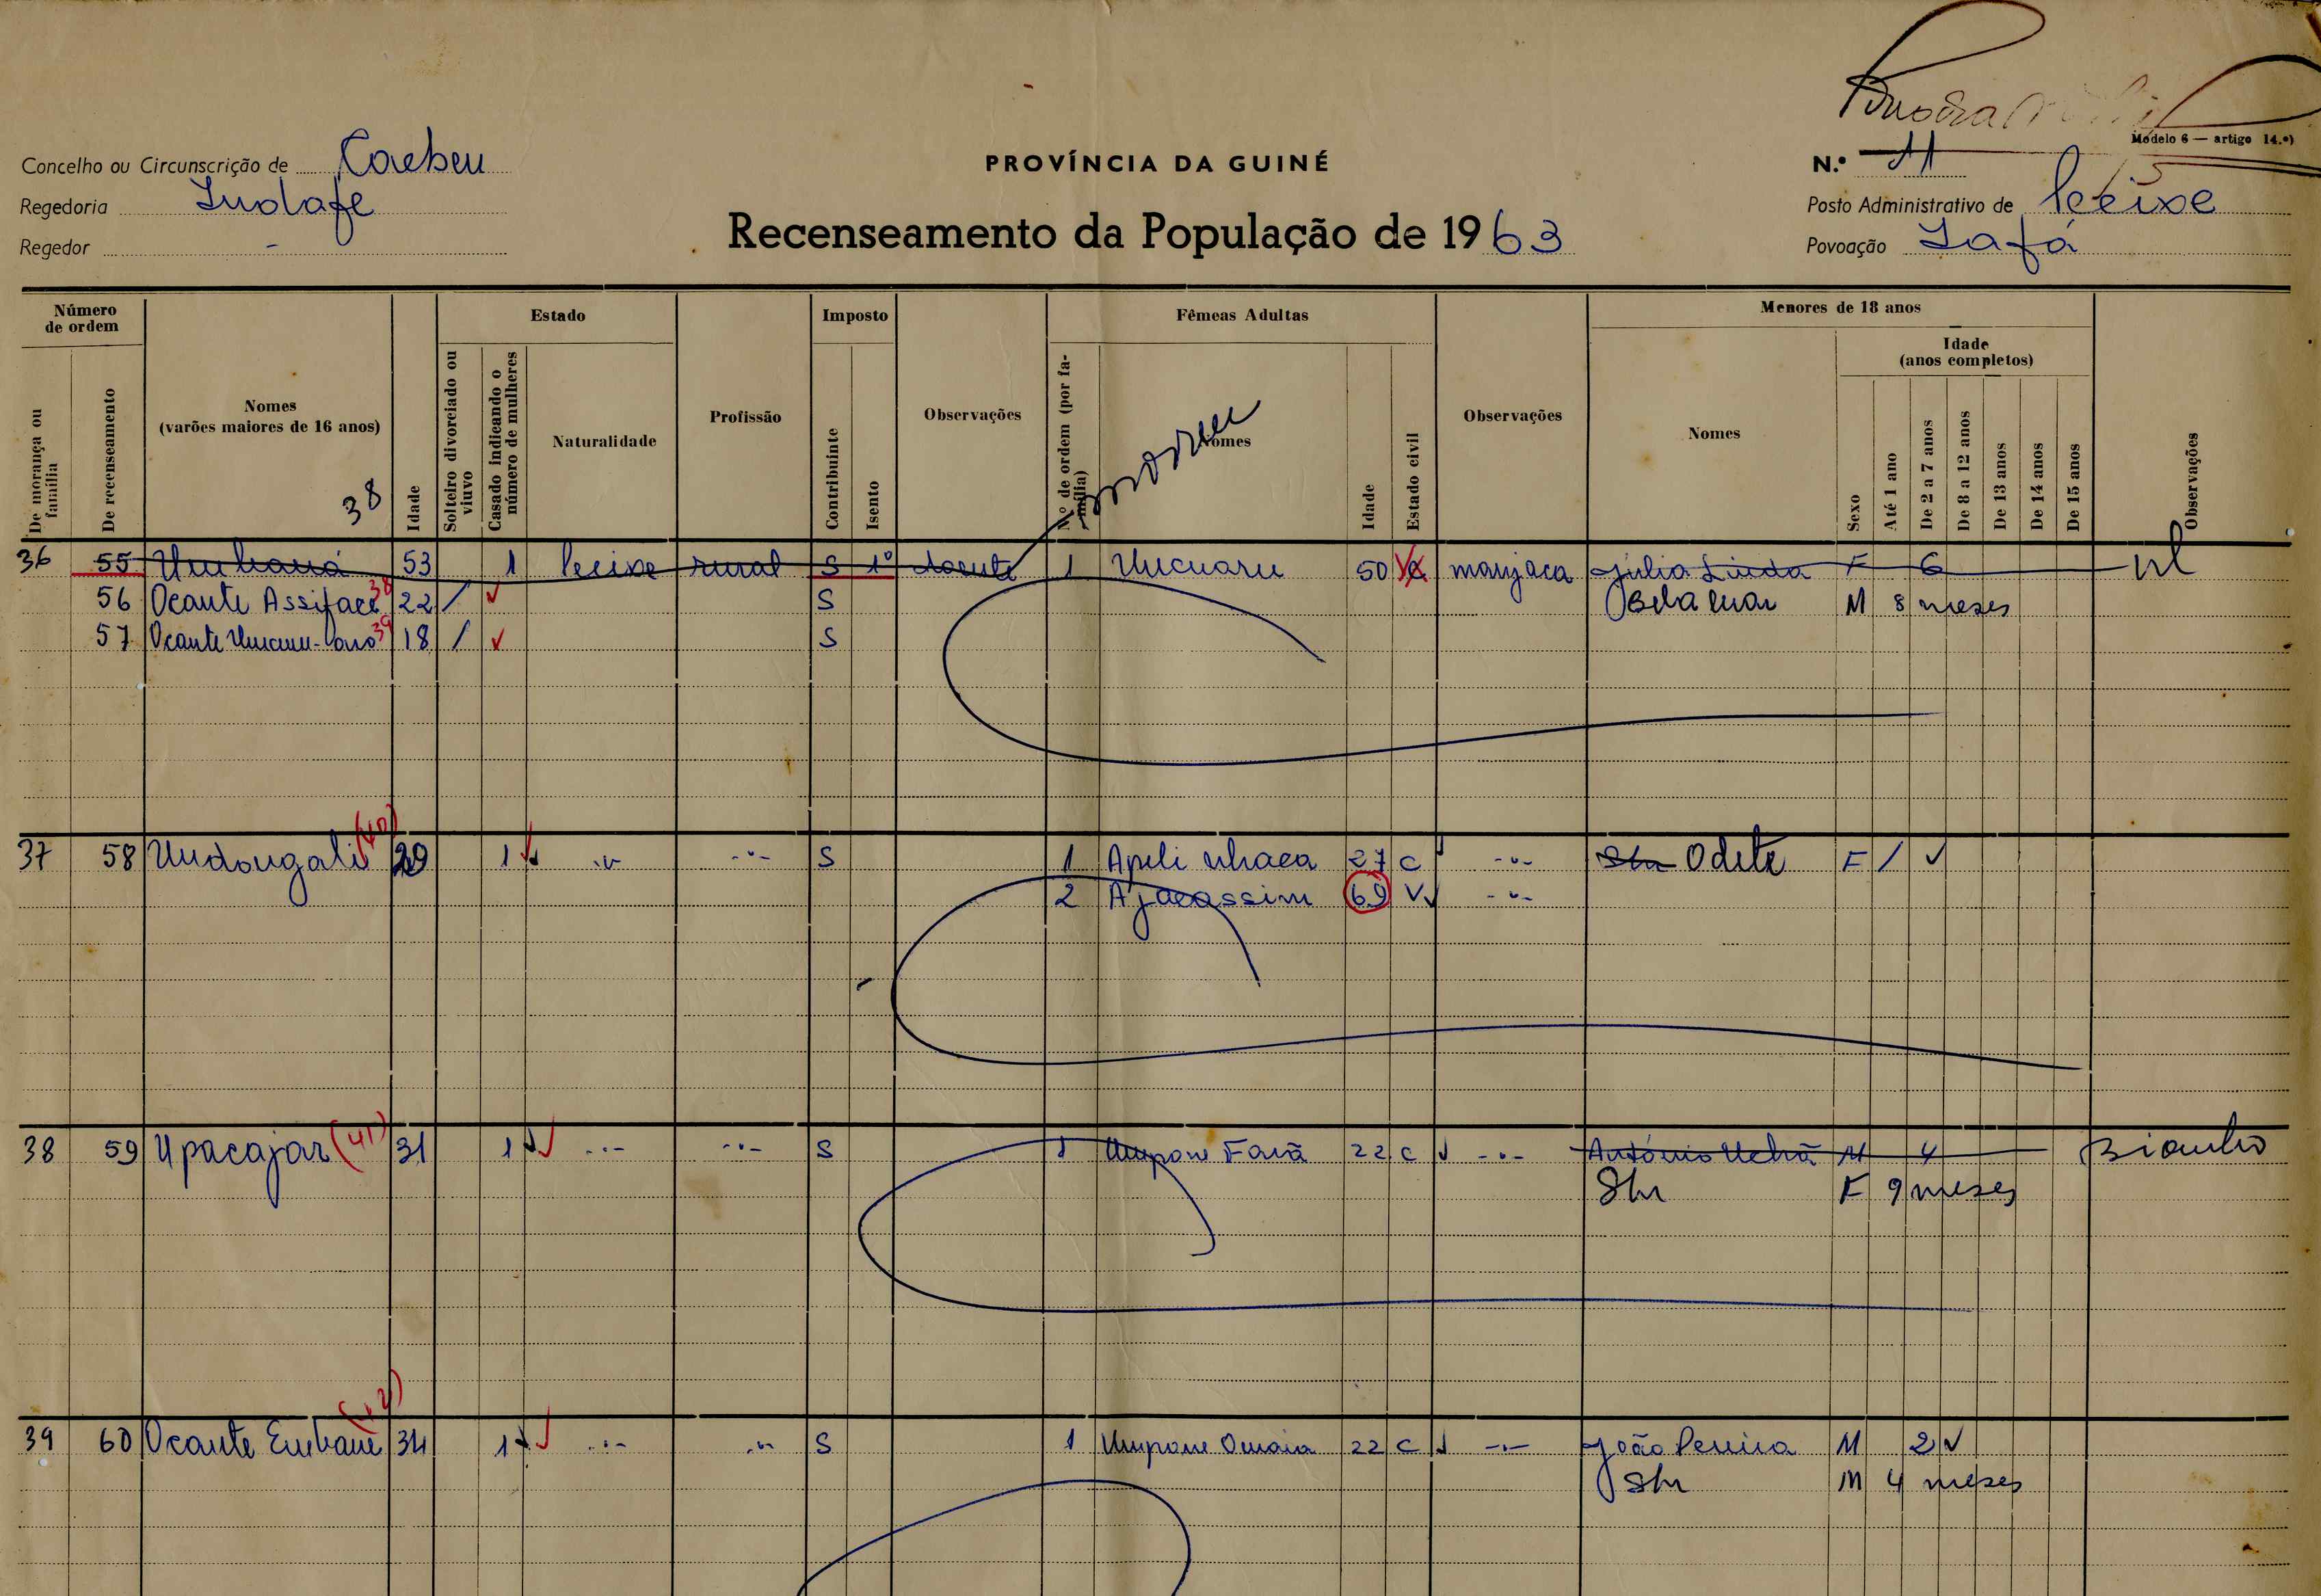 Modelo 6 — artigo 14.º)
Concelho ou Circunscrição de Caebeu
PROVÍNCIA DA GUINÉ
N.º 11
Regedoria Indafe
Recenseamento da População de 1963
Posto Administrativo de Pecixe
Regedor -
Povoação Iafá
Número de ordem
Estado
Imposto
Fêmeas Adultas
Menores de 18 anos
Idade (anos completos)
De morança ou família
De recenseamento
Nomes (varões maiores de 16 anos)
38
Idade
Solteiro divorciado ou viuvo
Casado indicando o número de mulheres
Naturalidade
Profissão
Contribuinte
Isento
Observações
N.º de ordem (por família)
Nomes
morreu
Idade
Estado civil
Observações
Nomes
Sexo
Até 1 ano
De 2 a 7 anos
De 8 a 12 anos
De 13 anos
De 14 anos
De 15 anos
Observações
36 55 53 1 Pecixe rural S 1º doente 1 Uncuaru 50 manjaca Júlia Linda F 6
56 Ocante Assiface 38 22 / S M 8 meses
57 Ocante 39 18 / S
37 58 Undongali (40) 29 1 S 1 Apili Nhaca 27 C Odete F /
2 Ajacassim 69 V
38 59 Upacajar (41) 31 1 S 1 Umpane Fanã 22 C António M 4 Biombo
F 9 meses
39 60 Ocante Embane (42) 34 1 S 1 Umpane Omaia 22 C João Pereira M 2
M 4 meses